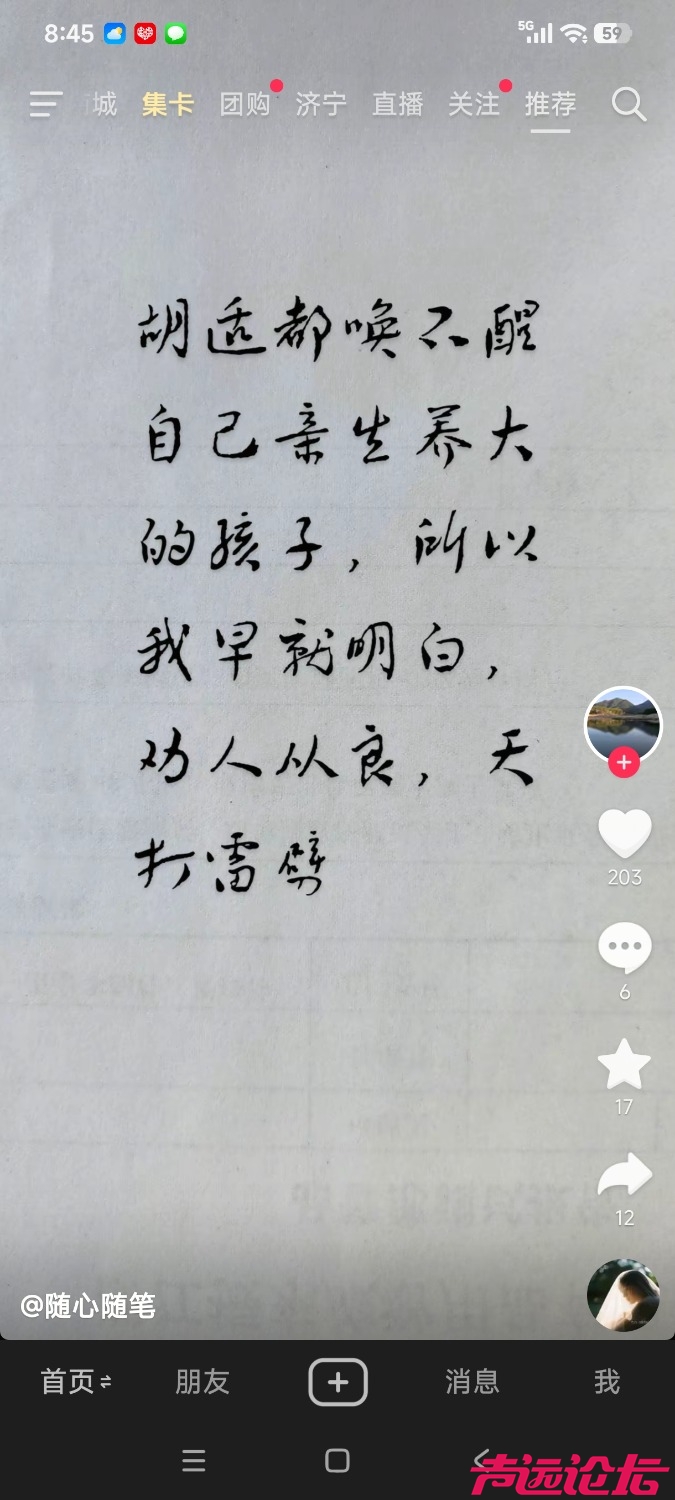 8:45
5G
59
城
集卡
团购
济宁
直播
关注
推荐
胡适都唤不醒
自己亲生养大
的孩子，所以
我早就明白，
劝人从良，天
打雷劈
203
6
17
12
@随心随笔
首页
朋友
消息
我
声远论坛